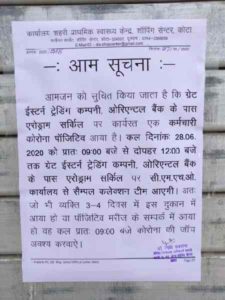 कार्यालय शहरी प्राथमिक स्वास्थ्य केन्द्र, शॉपिंग सेन्टर, कोटा
—: आम सूचना :—
आमजन को सुचित किया जाता है कि ग्रेट
ईस्टर्न ट्रेडिंग कम्पनी, ओरिएन्टल बैंक के पास
एरोड्राम सर्किल पर कार्यरत एक कर्मचारी
कोरोना पॉजिटिव आया है। कल दिनांक 28.06.
2020 को प्रातः 09:00 बजे से दोपहर 12:00 बजे
तक ग्रेट ईस्टर्न ट्रेडिंग कम्पनी, ओरिएन्टल बैंक
के पास एरोड्राम सर्किल पर सी.एम.एच.ओ.
कार्यालय से सैम्पल कलेक्शन टीम आएगी। अतः
जो भी व्यक्ति 3-4 दिवस में इस दुकान में
आया हो या पॉजिटिव मरीज के सम्पर्क में आया
हो वह कल प्रातः 09:00 बजे कोरोना की जॉच
अवश्य करवाऐ।